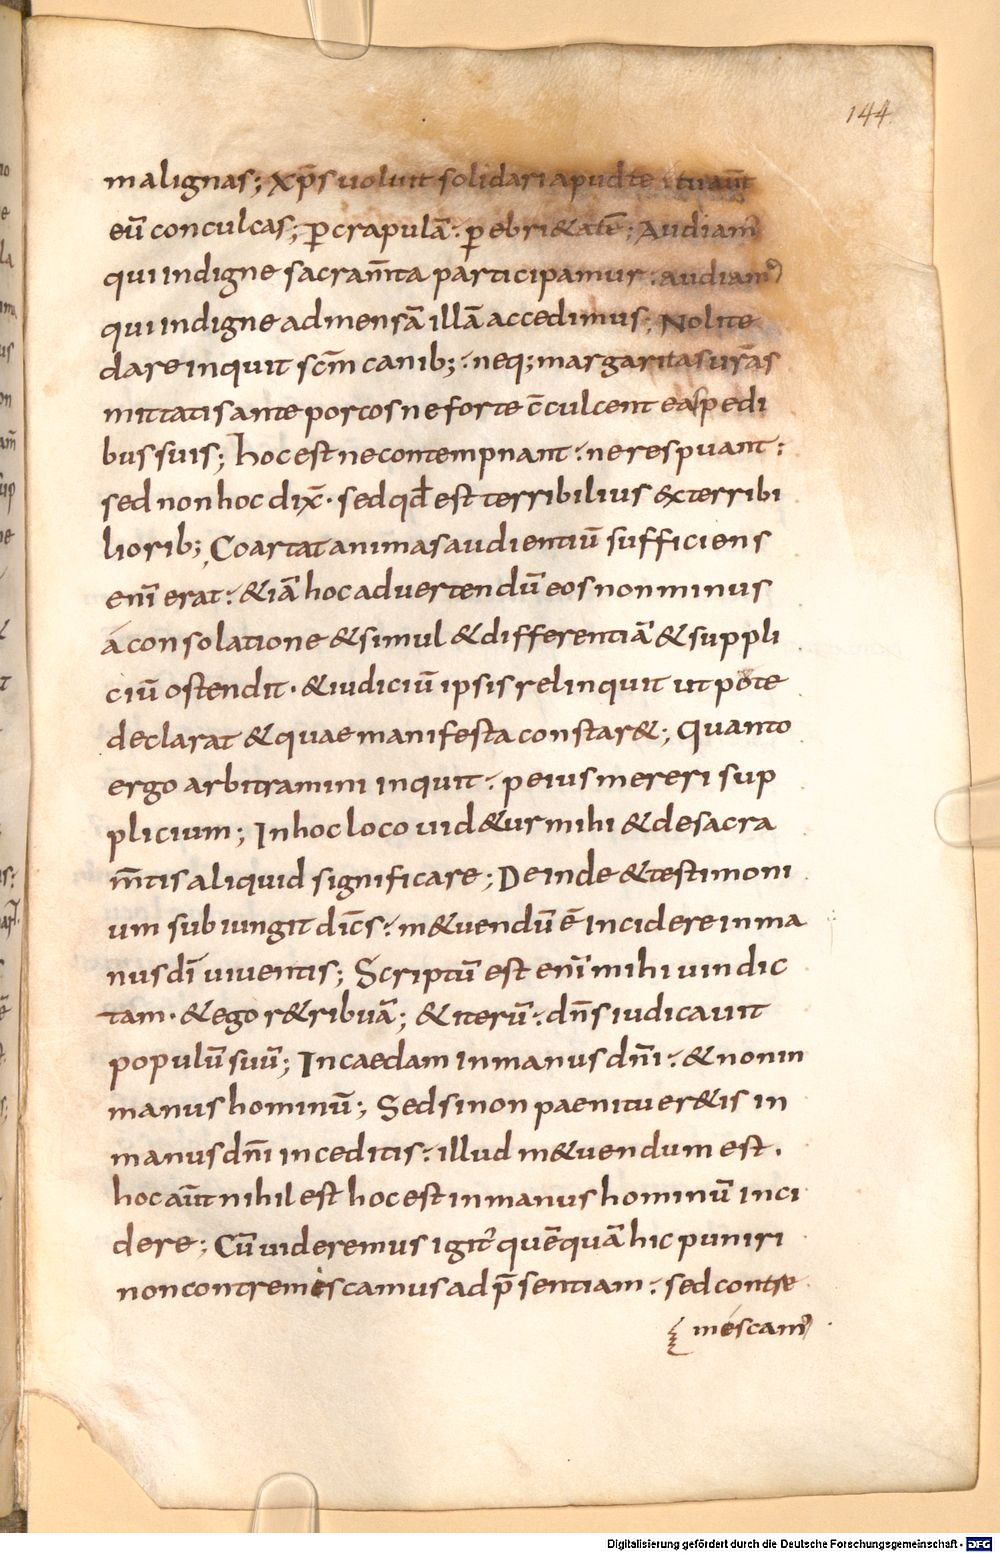 144
malignas; xp̄s voluit solidari apud te · tu aūt
eū conculcas; ꝑ crapulā · ꝑ ebri&atē; Audiam᾿
qui indigne sacram̄ta participamur · audiam᾿
qui indigne ad mensā illā accedimus; Nolite
dare inquit sc̄m canib; · neq; margaritas ur̄as
mittatis ante porcos ne forte c̄culcent eas pedi
bus suis; hoc est ne contempnant · ne respuant:
sed non hoc dix̄ · sed qd̄ est terribilius &terribi
lioribus; Coartat animas audientiū sufficiens
enī erat · &iā hoc advertendū eos non minus
á consolatione & simul & differentiā & suppli
ciū ostendit · & iudiciū ipsis relinquit ut pote
declarat & quae manifesta constar&; Quanto
ergo arbitramini inquit · peius mereri sup
plicium; In hoc loco uid&ur mihi & de sacra
m̄tis aliquid significare; Deinde & testimoni
um subiungit dic̄s · m&uendū ē incidere in ma
nus dī viventis; Scriptū est enī mihi vindic
tam · & ego r&ribuā; & iterū · dn̄s iudicavit
populū suū; Incaedam in manus dn̄i · & non in
manus hominū; Sed si non paenituer&is in
manus dn̄i inceditis · illud m&uendum est ·
hoc aūt nihil est hoc est in manus hominū inci
dere; Cū uideremus igit᾿ quēquā hic puniri
non contremescamus ad p̄sentiam · sed contre
méscam᾿
Digitalisierung gefördert durch die Deutsche Forschungsgemeinschaft - DFG